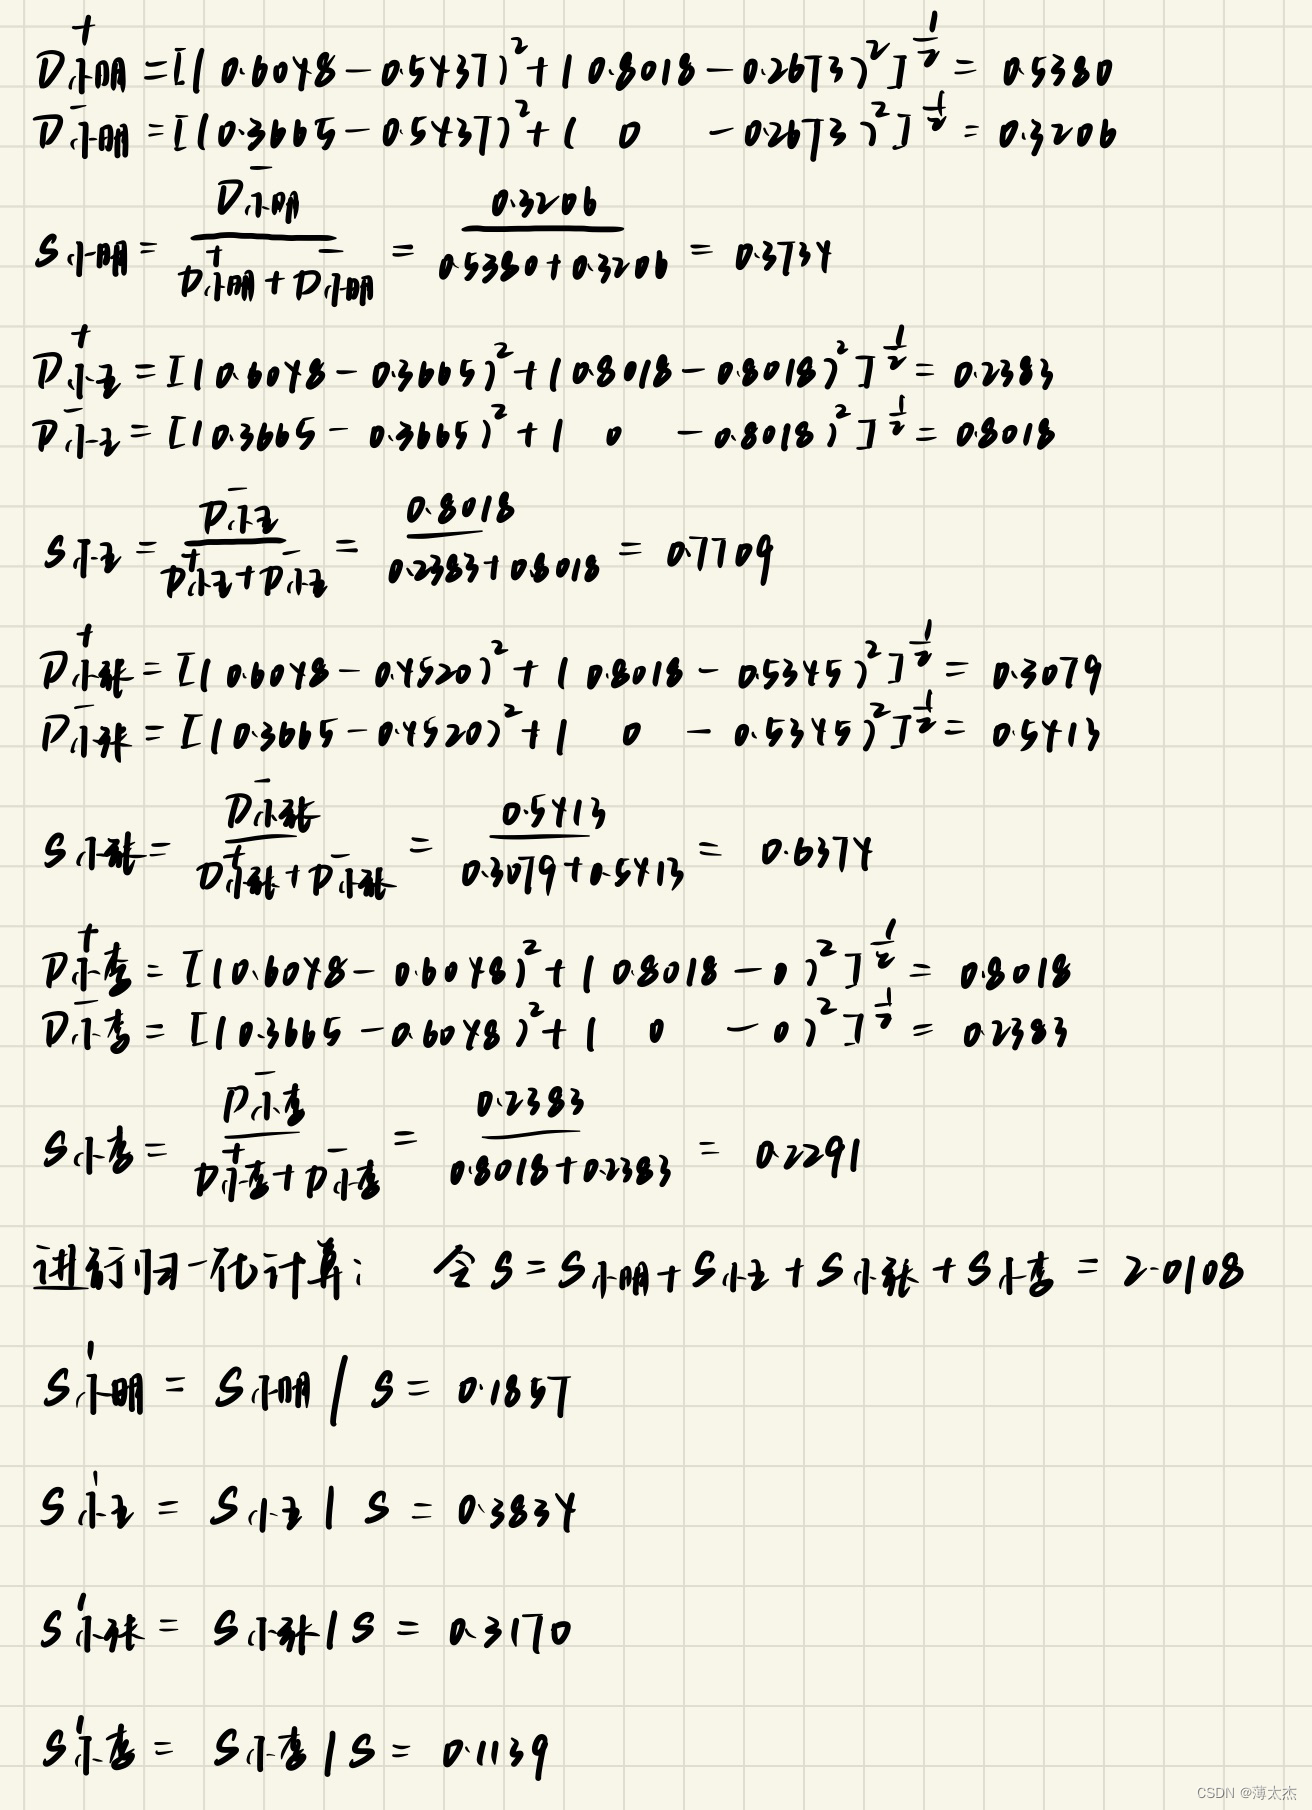 D⁺小明 = [(0.6048 - 0.5437)² + (0.8018 - 0.2673)²]^½ = 0.5380
D⁻小明 = [(0.3665 - 0.5437)² + (0 - 0.2673)²]^½ = 0.3206
S小明 = D⁻小明 / (D⁺小明 + D⁻小明) = 0.3206 / (0.5380 + 0.3206) = 0.3734
D⁺小王 = [(0.6048 - 0.3665)² + (0.8018 - 0.8018)²]^½ = 0.2383
D⁻小王 = [(0.3665 - 0.3665)² + (0 - 0.8018)²]^½ = 0.8018
S小王 = D⁻小王 / (D⁺小王 + D⁻小王) = 0.8018 / (0.2383 + 0.8018) = 0.7709
D⁺小张 = [(0.6048 - 0.4520)² + (0.8018 - 0.5345)²]^½ = 0.3079
D⁻小张 = [(0.3665 - 0.4520)² + (0 - 0.5345)²]^½ = 0.5413
S小张 = D⁻小张 / (D⁺小张 + D⁻小张) = 0.5413 / (0.3079 + 0.5413) = 0.6374
D⁺小李 = [(0.6048 - 0.6048)² + (0.8018 - 0)²]^½ = 0.8018
D⁻小李 = [(0.3665 - 0.6048)² + (0 - 0)²]^½ = 0.2383
S小李 = D⁻小李 / (D⁺小李 + D⁻小李) = 0.2383 / (0.8018 + 0.2383) = 0.2291
进行归一化计算: 令 S = S小明 + S小王 + S小张 + S小李 = 2.0108
S'小明 = S小明 / S = 0.1857
S'小王 = S小王 / S = 0.3834
S'小张 = S小张 / S = 0.3170
S'小李 = S小李 / S = 0.1139
CSDN @薄太杰